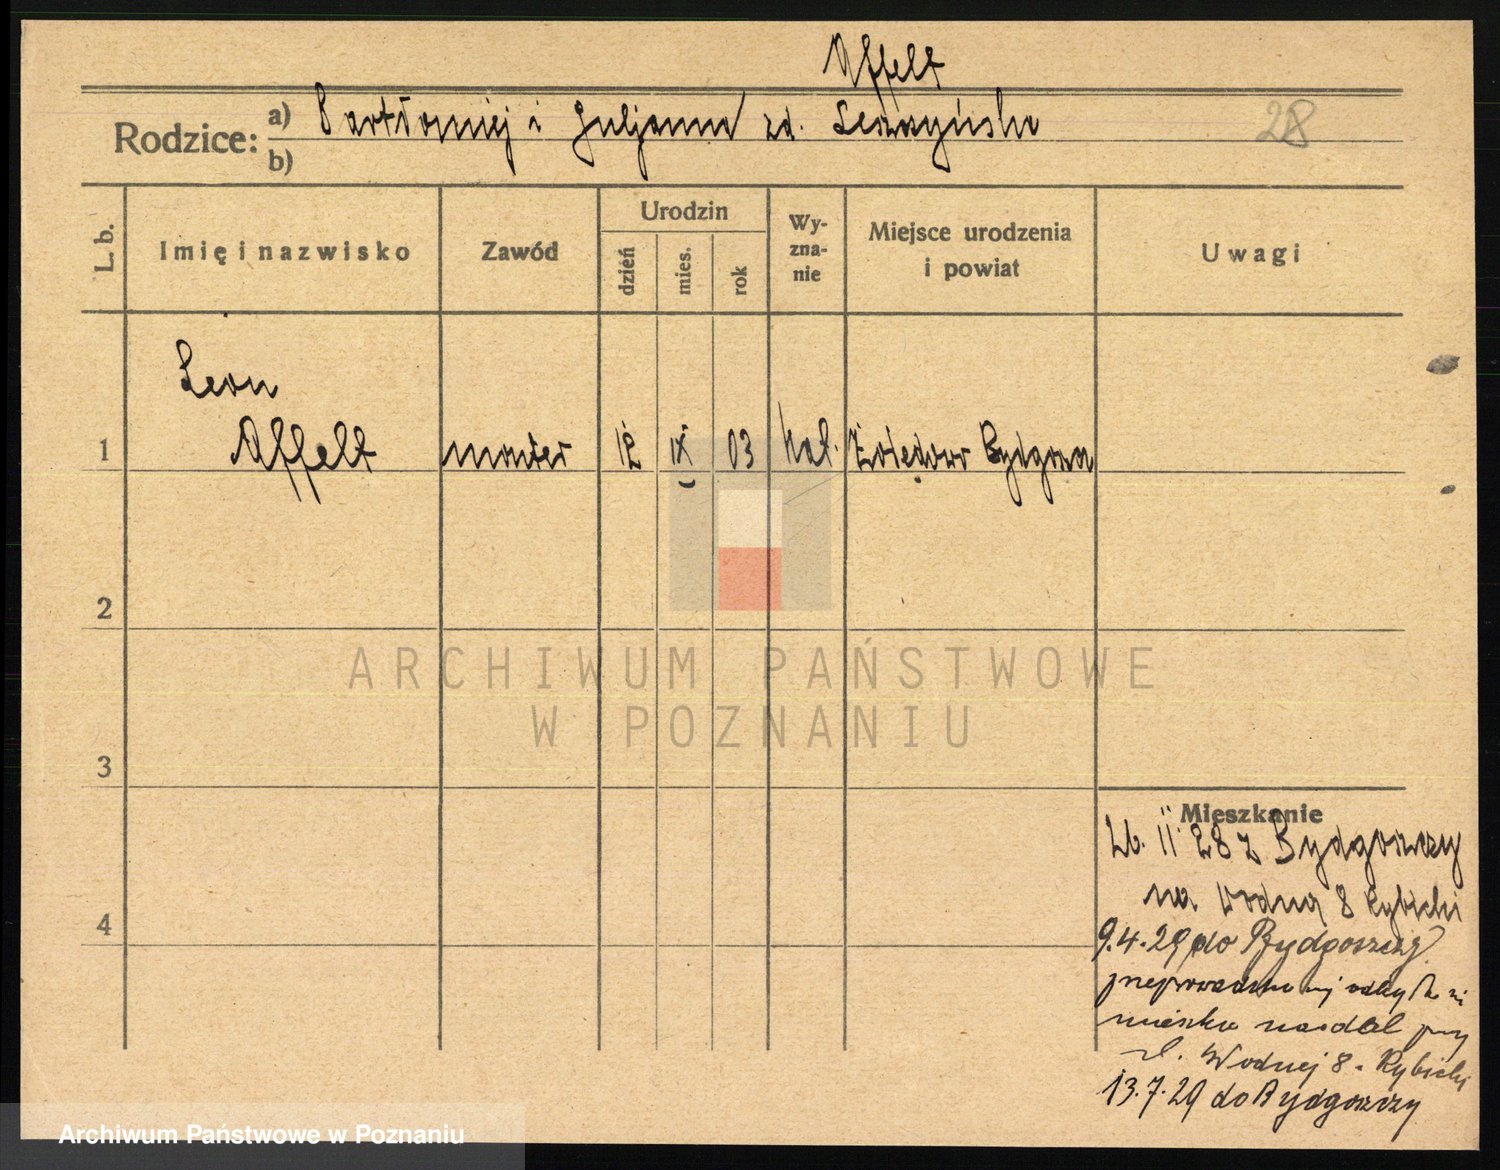 Affelt
Rodzice: a) Bartłomiej i Juljanna zd. Leszczyńska
28
b)
L. b.
Imię i nazwisko
Zawód
Urodzin
dzień
mies.
rok
Wy-
zna-
nie
Miejsce urodzenia
i powiat
Uwagi
Leon
1 Affelt monter 12 IX 03 kat. Żołędowo Bydgoszcz
2
ARCHIWUM PAŃSTWOWE
W POZNANIU
3
Mieszkanie
26. II 28 z Bydgoszczy
na Wodną 8 Rybicki
4
9.4.29 do Bydgoszczy
mieszka nadal przy
ul. Wodnej 8. Rybicki
13.7.29 do Bydgoszczy
Archiwum Państwowe w Poznaniu